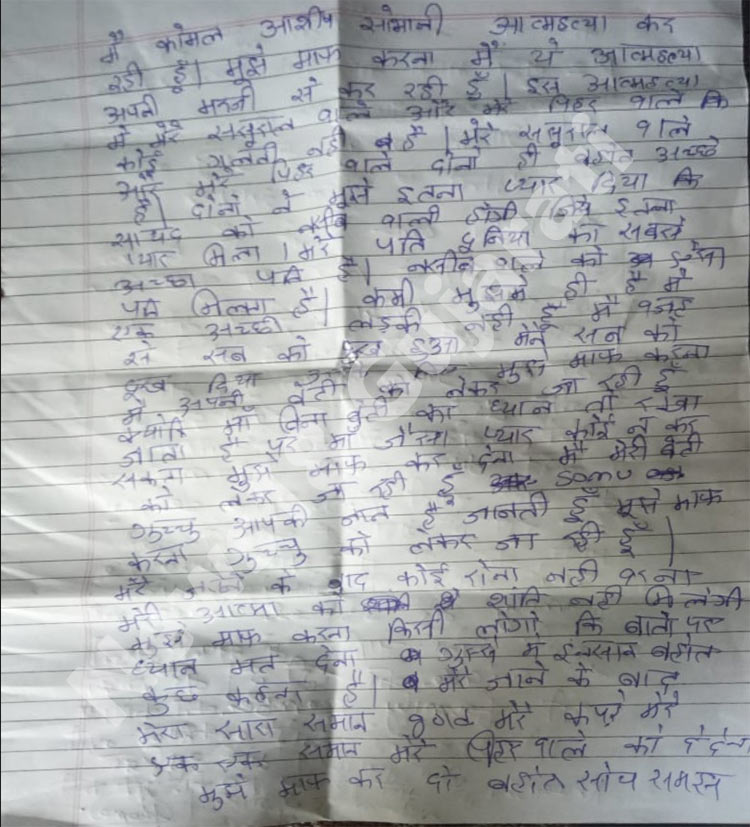 मैं कोमल आशीष सोमानी आत्महत्या कर
रही हूँ। मुझे माफ करना मैं ये आत्महत्या
अपनी मरजी से कर रही हूँ। इस आत्महत्या
मे मेरे ससुराल वाले और मेरे पिहर वाले कि
कोई गलती नही है। मेरे ससुराल वाले
और मेरे पिहर वाले दोनो ही बहोत अच्छे
है। दोनो ने मुझे इतना प्यार दिया कि
सायद को नसीब वाली होगी जिसे इतना
प्यार मिला। मेरे पति दुनिया का सबसे
अच्छा पति है। नसीब वाले को ऐसा
पति मिलता है। कमी मुझमे ही है मैं
एक अच्छी लड़की नही हूँ मैं वजह
से सब को दुख हुआ मैने सब को
दुख दिया मुझे माफ करना
मैं अपनी बेटी को लेकर जा रही हूँ
क्योकि माँ बिना बेटी का ध्यान तो रखा
जाता है पर माँ जैसा प्यार कोई न कर
सकता मुझे माफ कर देना मैं मेरी बेटी
को लेकर जा रही हूँ somu
गुच्चु आपकी जान है जानती हूँ मुझे माफ
करना गुच्चु को लेकर जा रही हूँ।
मेरे जाने के बाद कोई रोना नही वरना
मेरी आत्मा को शांति नही मिलेगी
मुझे माफ करना किसी लोगो कि बातो पर
ध्यान मत देना गुस्से में इन्सान बहोत
कुछ कहेता है। मेरे जाने के बाद
मेरा सारा समान मेरे कपड़े मेरे
एक एक समान मेरे पिहर वाले को दे देना
मुझे माफ कर दो बहोत सोच समझ
Gujarati